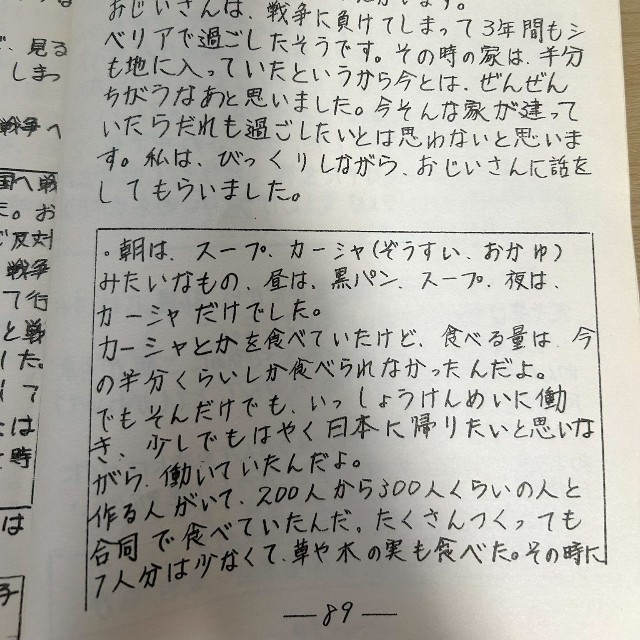 おじいさんは、戦争に負けてしまって3年間もシ
ベリアで過ごしたそうです。その時の家は、半分
も地に入っていたというから今とは、ぜんぜん
ちがうなあと思いました。今そんな家が建って
いたらだれも過ごしたいとは思わないと思いま
す。私は、びっくりしながら、おじいさんに話を
してもらいました。
・朝は、スープ、カーシャ(ぞうすい、おかゆ)
みたいなもの、昼は、黒パン、スープ、夜は、
カーシャだけでした。
カーシャとかを食べていたけど、食べる量は、今
の半分くらいしか食べられなかったんだよ。
でもそんだけでも、いっしょうけんめいに働
き、少しでもはやく日本に帰りたいと思いな
がら、働いていたんだよ。
作る人がいて、200人から300人くらいの人と
合同で食べていたんだ。たくさんつくっても
1人分は少なくて、草や木の実も食べた。その時に
—89—
で、見る
しまっ
戦争へ
国へ戦
た。お
で反対
戦争
て行
と戦
た。
て
は
時
は